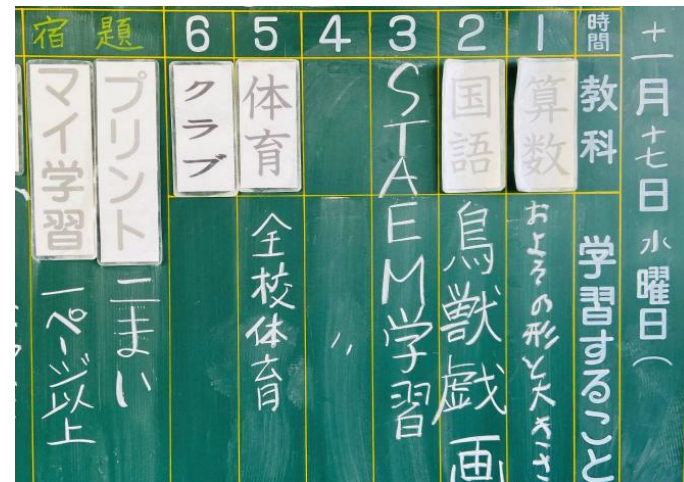 十一月十七日水曜日(
時間 教科 学習すること
1 算数 およその形と大きさ
2 国語 鳥獣戯画
3 STAEM学習
4 〃
5 体育 全校体育
6 クラブ
宿題
プリント 二まい
マイ学習 一ページ以上